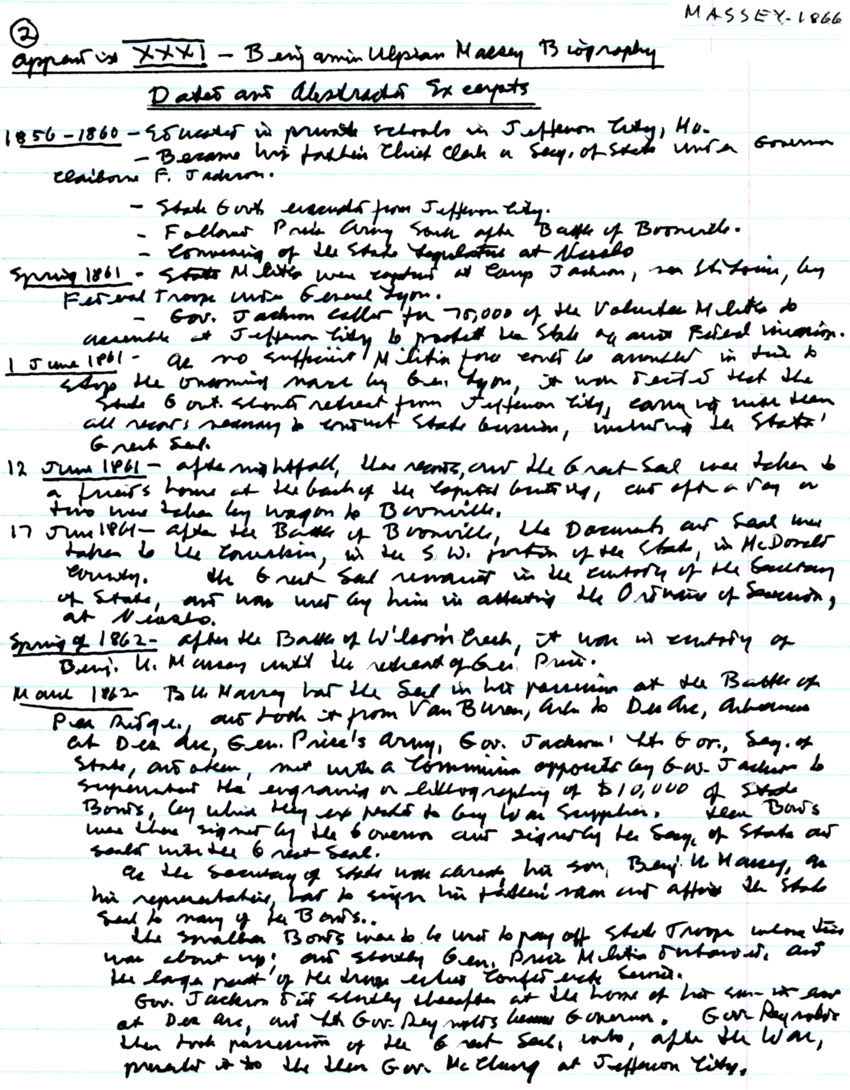 MASSEY-1866
②
Appendix XXXI - Benjamin Ulpian Massey Biography
Dated and Abstracted Excerpts
1856-1860 - Educated in private schools in Jefferson City, Mo.
- Became his father's Chief Clerk as Secy. of State under Governor
Claiborne F. Jackson.
- State Govt. evacuated from Jefferson City.
- Followed Price Army South after Battle of Boonville.
- Convening of the State Legislature at Neosho
Spring 1861 - State Militia were captured at Camp Jackson, near St. Louis, by
Federal Troops under General Lyon.
- Gov. Jackson called for 70,000 of the Volunteer Militia to
assemble at Jefferson City to protect the State against Federal invasion.
1 June 1861 - As no sufficient Militia force could be assembled in time to
stop the oncoming march by Gen. Lyon, it was decided that the
State Govt. should retreat from Jefferson City, carrying with them
all records necessary to conduct State business, including the State's
Great Seal.
12 June 1861 - After nightfall, these records, and the Great Seal were taken to
a friend's home at the back of the Capitol building, and after a day or
two were taken by wagon to Boonville.
17 June 1861 - After the Battle of Boonville, the Documents and Seal were
taken to the , in the S.W. portion of the State, in McDonald
County. The Great Seal remained in the custody of the Secretary
of State, and was used by him in attesting the Ordinance of Secession,
at Neosho.
Spring of 1862 - After the Battle of Wilson's Creek, it was in custody of
Benj. U. Massey until the retreat of Gen. Price.
March 1862 - B U Massey had the Seal in his possession at the Battle of
Pea Ridge, and took it from Van Buren, Ark to Des Arc, Arkansas
At Des Arc, Gen. Price's Army, Gov. Jackson, Lt Gov., Secy. of
State, and others, met with a Commission appointed by Gov. Jackson to
superintend the engraving or lithographing of $10,000 of State
Bonds, by which they expected to buy War Supplies. These Bonds
were there signed by the Governor and signed by the Secy. of State and
sealed with the Great Seal.
As the Secretary of State was absent, his son, Benj. U Massey, as
his representative, had to sign his father's name and affix the State
Seal to many of the Bonds.
The smaller Bonds were to be used to pay off State Troops whose time
was about up; and shortly Gen. Price Militia disbanded, and
the large part of the troops entered Confederate Service.
Gov. Jackson died shortly thereafter at the home of his son-in-law
at Des Arc, and Lt Gov. Reynolds became Governor. Gov. Reynolds
then took possession of the Great Seal, who, after the War,
presented it to the then Gov. McClurg at Jefferson City.